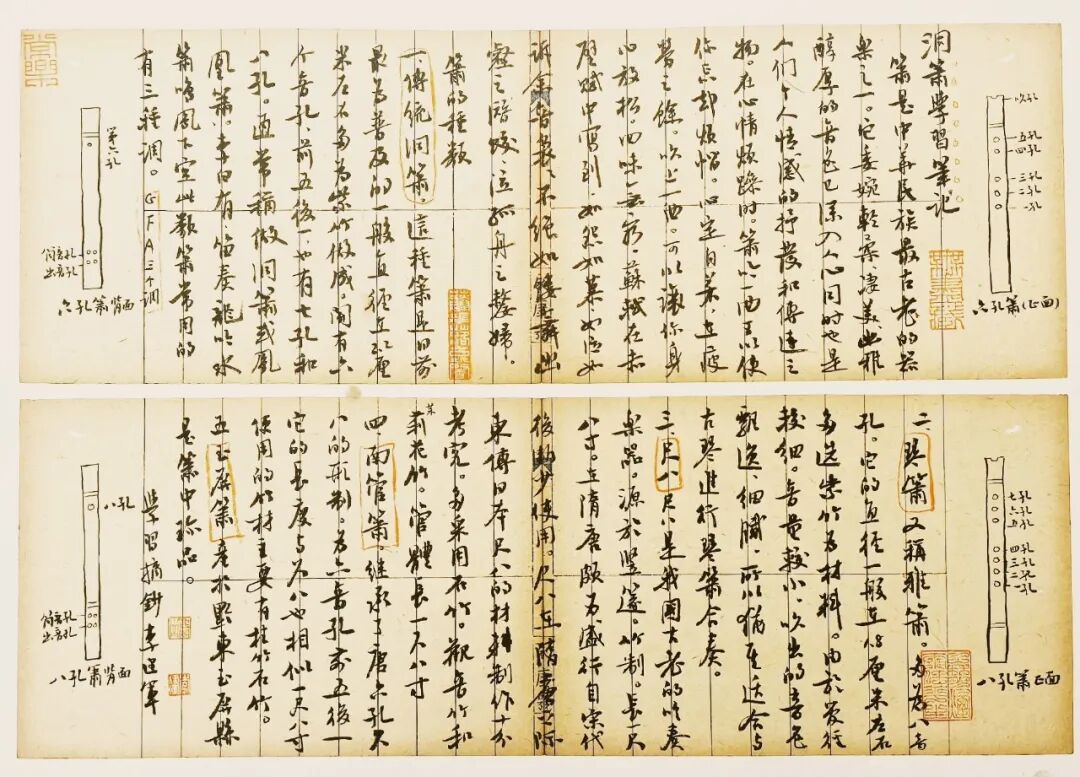 洞箫學習筆記
箫是中華民族最古老的器
樂之一。它委婉輕柔、凄美幽雅
醇厚的音色已深入人心同時也是
人们个人情感的抒發和傳達之
物。在心情煩躁時。箫吹一曲可以使
你忘却煩惱。心定自若、在疲
勞之餘。吹上一曲。可以讓你身
心放松。回味無窮。蘇軾在赤
壁赋中寫到、如怨如慕、如泣如
訴餘音裊裊、不絕如縷舞幽
壑之潜蛟、泣孤舟之嫠婦。
箫的種類
一、傳統洞箫。這種箫是目前
最為普及的一般直徑在
米左右多為紫竹做成。開有六
个音孔、前五後一、也有七孔和
八孔。通常稱做洞箫或鳳
凰箫。李白有、笛奏龍吟水
箫鳴鳳下空此類箫常用的
有三種調。G F A三个調
吹孔
五孔
四孔
三孔
二孔
一孔
六孔箫(正面)
第六孔
筒音孔
出音孔
六孔箫背面
二、琴箫 又稱雅箫。多為八音
孔。它的直徑一般在1.8厘米左右
多选紫竹為材料。由於管徑
較细。音量較小、吹出的音色
飄逸、细腻、所以獨適合与
古琴進行琴箫合奏。
三、尺八 尺八是我國古老的吹奏
樂器。源於竖篴。竹制。長一尺
八寸。在隋唐頗為盛行自宋代
後勘少使用。尺八在隋唐之际
東傳日本尺八的材料制作十分
考究。多采用石竹。觀音竹和
茉莉花竹。管體長一尺八寸
四、南管箫。继承了唐六孔尺
八的形制。為六音孔前五後一
它的長度与尺八也相似一尺八寸
使用的竹材主要有桂竹石竹。
五、玉屏箫 產於黔東玉屏縣
是箫中珍品。
學習摘鈔
七孔
六孔
五孔
四孔
三孔
二孔
一孔
八孔箫正面
八孔
筒音孔
出音孔
八孔箫背面